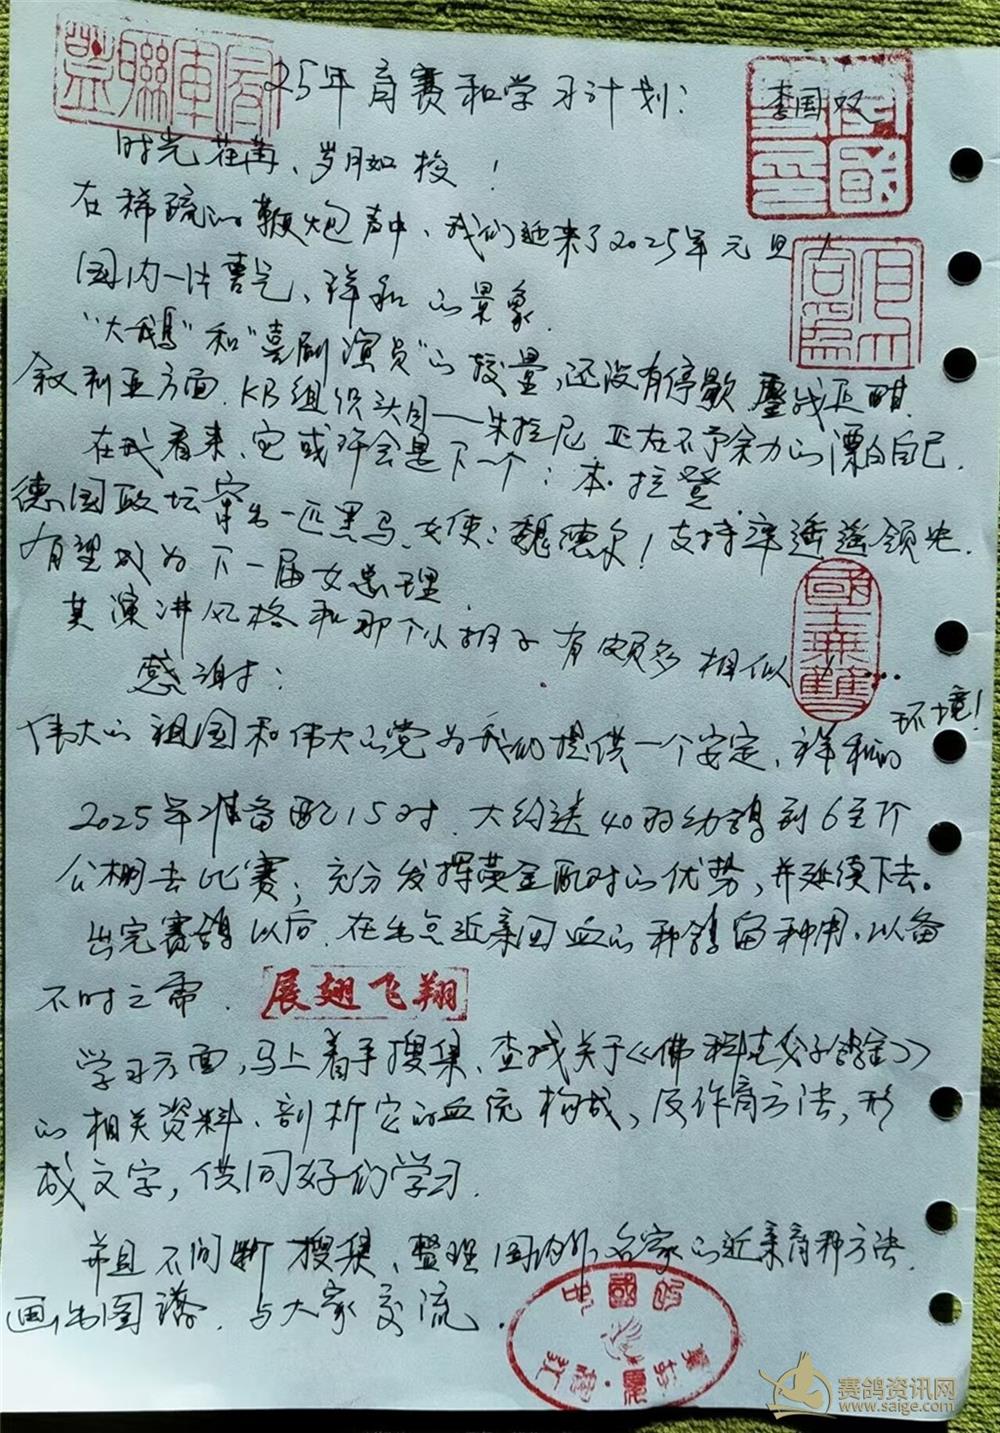 25年育赛和学习计划：
李国双
时光荏苒、岁月如梭！
在稀疏的鞭炮声中、我们迎来了2025年元旦！
国内一片喜气、祥和的景象.
“大鹅”和“喜剧演员”的较量,还没有停歇.鏖战正酣.
叙利亚方面.KB组织头目——朱拉尼.正在不予余力的漂白自己.
在我看来、它或许会是下一个：本.拉登.
德国政坛窜出一匹黑马.女使：魏德尔！支持率遥遥领先.
有望成为下一届女总理.
其演讲风格和那个小胡子有颇多相似！...
感谢：
伟大的祖国和伟大的党为我们提供一个安定、祥和的
环境！
2025年准备配15对.大约送40羽幼鸽到6至7个
公棚去比赛，充分发挥黄金配对的优势，并延续下去。
出完赛鸽以后.在出点近亲回血的种鸽留种用.以备
不时之需.
展翅飞翔
学习方面，马上着手搜集、查找关于《佛科克父子鸽舍》
的相关资料、剖析它的血统构成，及作育方法，形
成文字，供同好们学习.
并且不间断搜集、整理国内外名家的近亲育种方法.
画出图谱.与大家交流.
國士無雙
赛鸽资讯网
www.saige.com